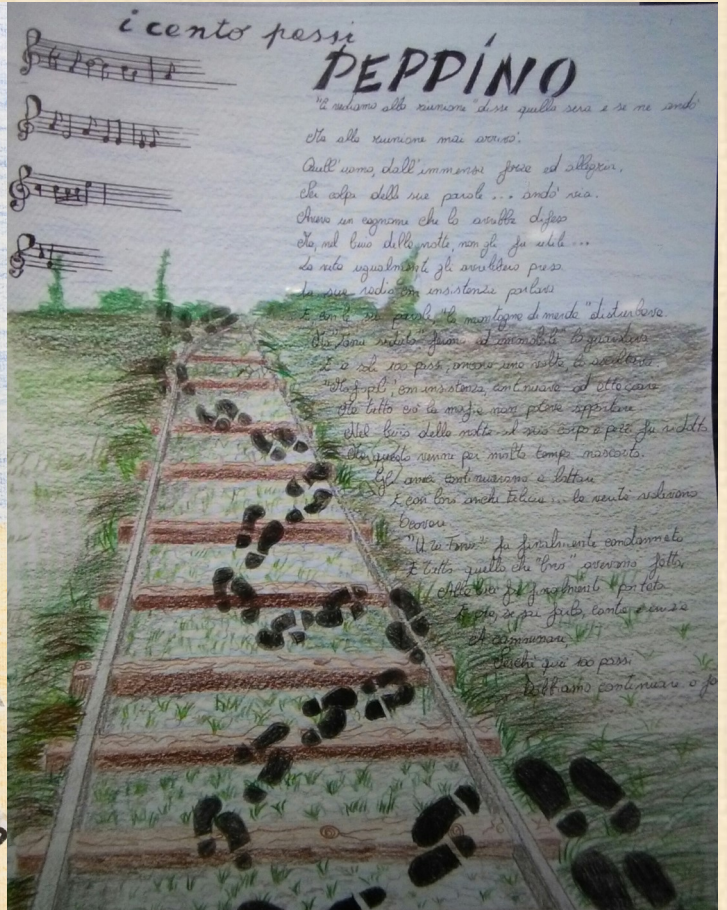 i cento passi
PEPPINO
"Ci vediamo alla riunione" disse quella sera e se ne andò
Ma alla riunione mai arrivò.
Quell'uomo, dall'immensa forza ed allegria,
Per colpa delle sue parole ... andò via.
Aveva un cognome che lo avrebbe difeso
Ma, nel buio della notte, non gli fu utile ...
La vita ugualmente gli avrebbero preso.
La sua radio con insistenza parlava
E con le sue parole "la montagna di merda" disturbava.
Ma "Tano seduto" fermo ed immobile lo guardava
E a soli 100 passi, ancora una volta, lo ascoltava
"Mafiopoli", con insistenza, continuava ad attaccare
Ma tutto ciò la mafia non poteva sopportare
Nel buio della notte il suo corpo a pezzi fu ridotto
Ma questo venne per molto tempo nascosto.
Gli amici continuarono a lottare
E con loro anche Felicia ... la verità volevano
trovare
"U zu Tano" fu finalmente condannato
E tutto quello che "loro" avevano fatto,
Alla luce fu finalmente portato
E ora, se sei forte, conta e
A camminare,
Perché quei 100 passi
Dobbiamo continuare a